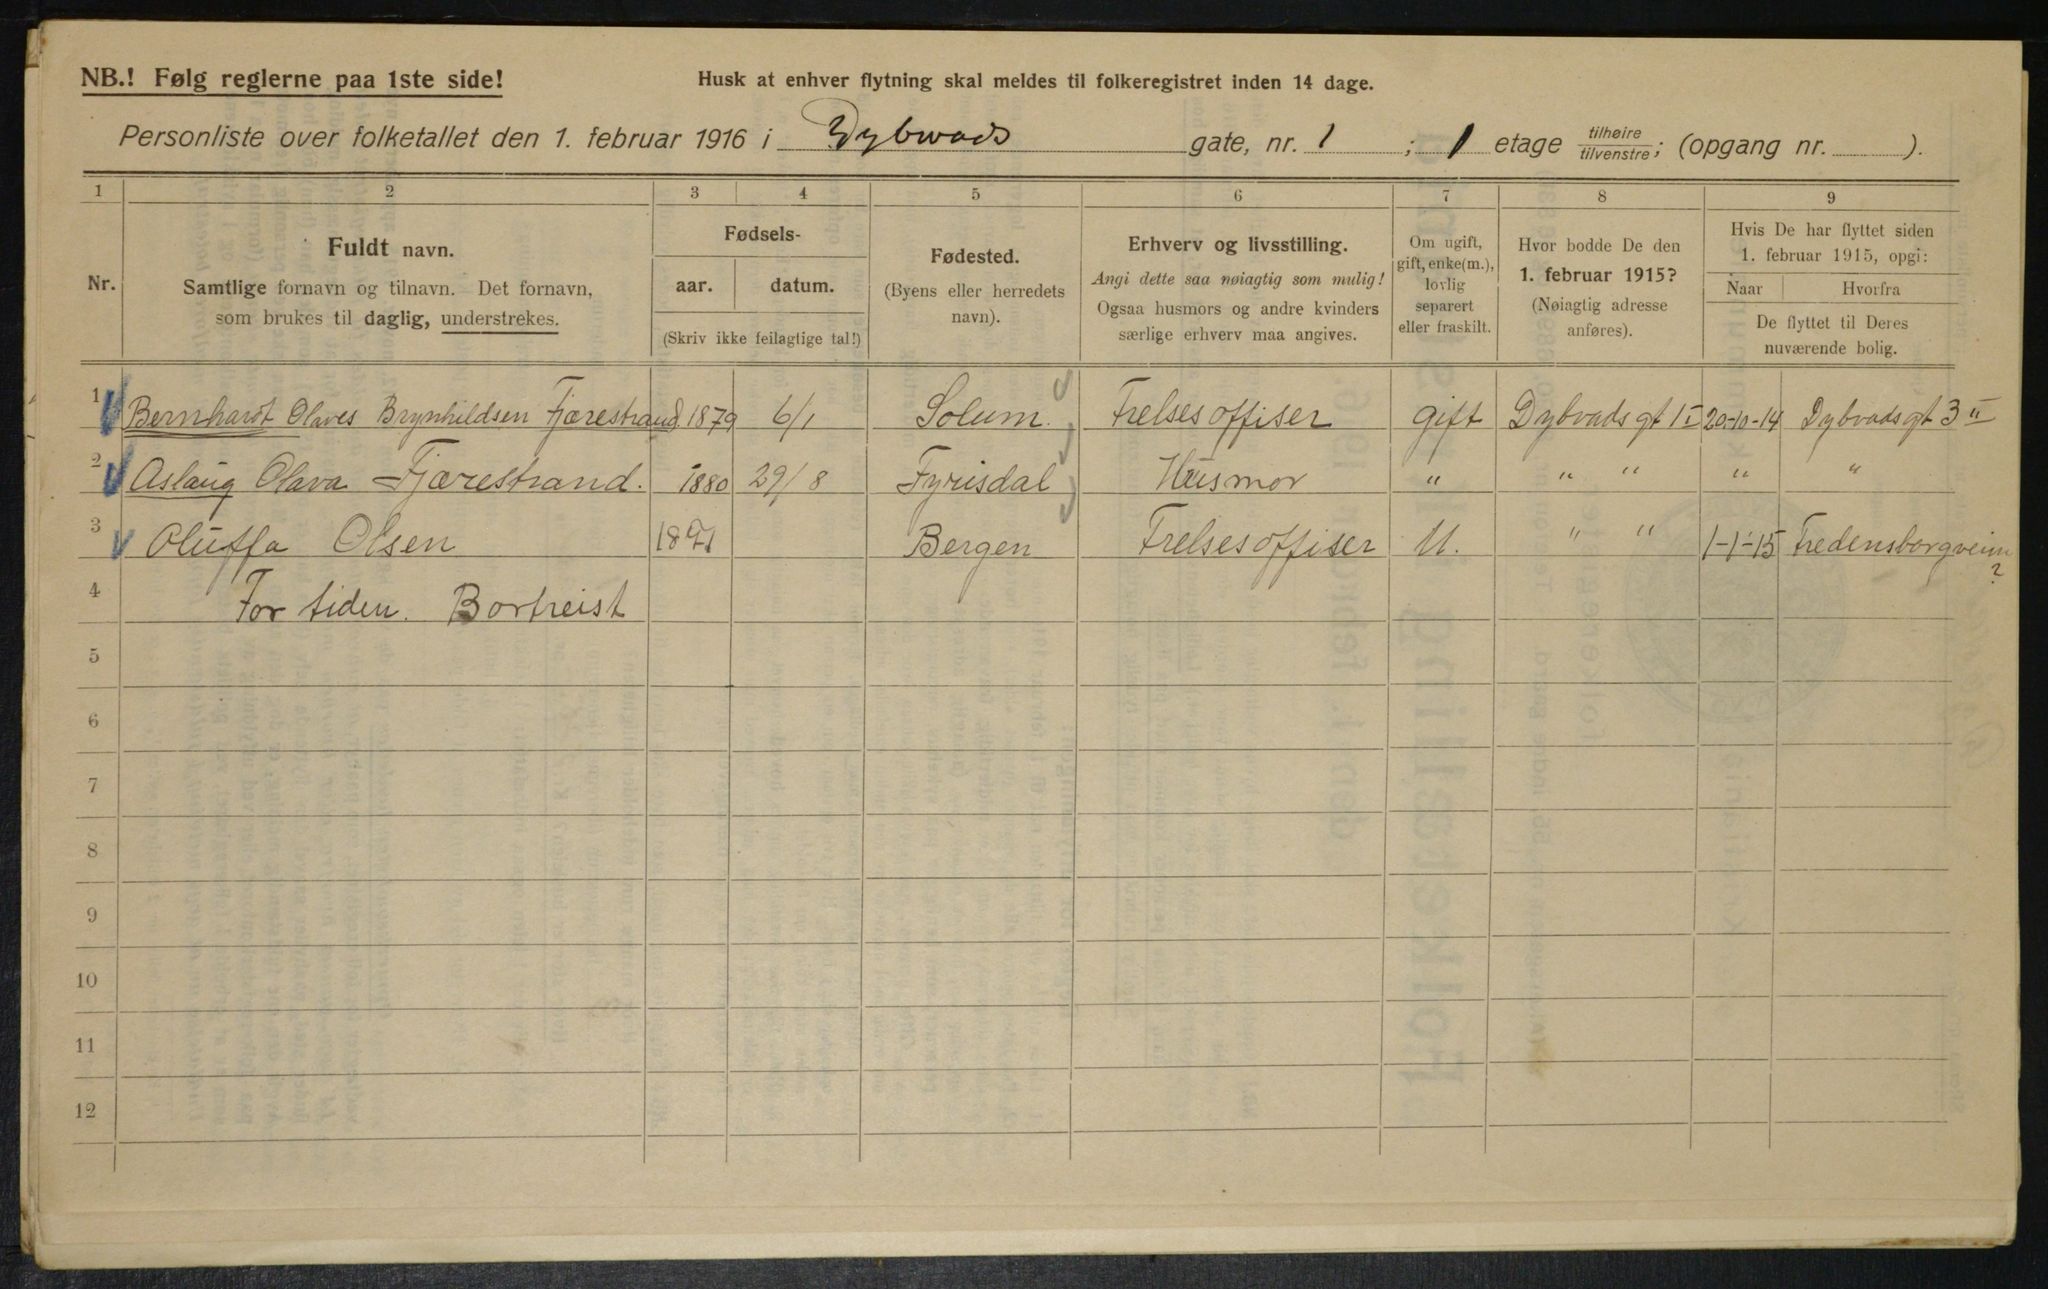 NB.! Følg reglerne paa 1ste side!
Husk at enhver flytning skal meldes til folkeregistret inden 14 dage.
Personliste over folketallet den 1. februar 1916 i Dybwads gate, nr. 1 ; 1 etage tilhøire/tilvenstre; (opgang nr. ).
1 2 3 4 5 6 7 8 9
Nr.
Fuldt navn.
Samtlige fornavn og tilnavn. Det fornavn,
som brukes til daglig, understrekes.
Fødsels-
aar. datum.
(Skriv ikke feilagtige tal!)
Fødested.
(Byens eller herredets
navn).
Erhverv og livsstilling.
Angi dette saa nøiagtig som mulig!
Ogsaa husmors og andre kvinders
særlige erhverv maa angives.
Om ugift,
gift, enke(m.),
lovlig
separert
eller fraskilt.
Hvor bodde De den
1. februar 1915?
(Nøiagtig adresse
anføres).
Hvis De har flyttet siden
1. februar 1915, opgi:
Naar Hvorfra
De flyttet til Deres
nuværende bolig.
1 Bernhardt Olaves Brynhildsen Fjærestrand. 1879 6/1 Solum. Frelsesoffiser gift Dybvads gt 1 I 20-10-14 Dybvads gt 3 II
2 Aslaug Olava Fjærestrand. 1880 29/8 Fyrisdal Husmor " " " " "
3 Oluffa Olsen Bergen Frelsesoffiser U. " " 1-1-15 Fredensborgveien ?
4 For tiden. Bortreist
5
6
7
8
9
10
11
12